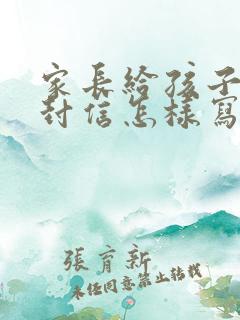 家長給孩子
封信怎樣寫
張育新
未经同意禁止转载